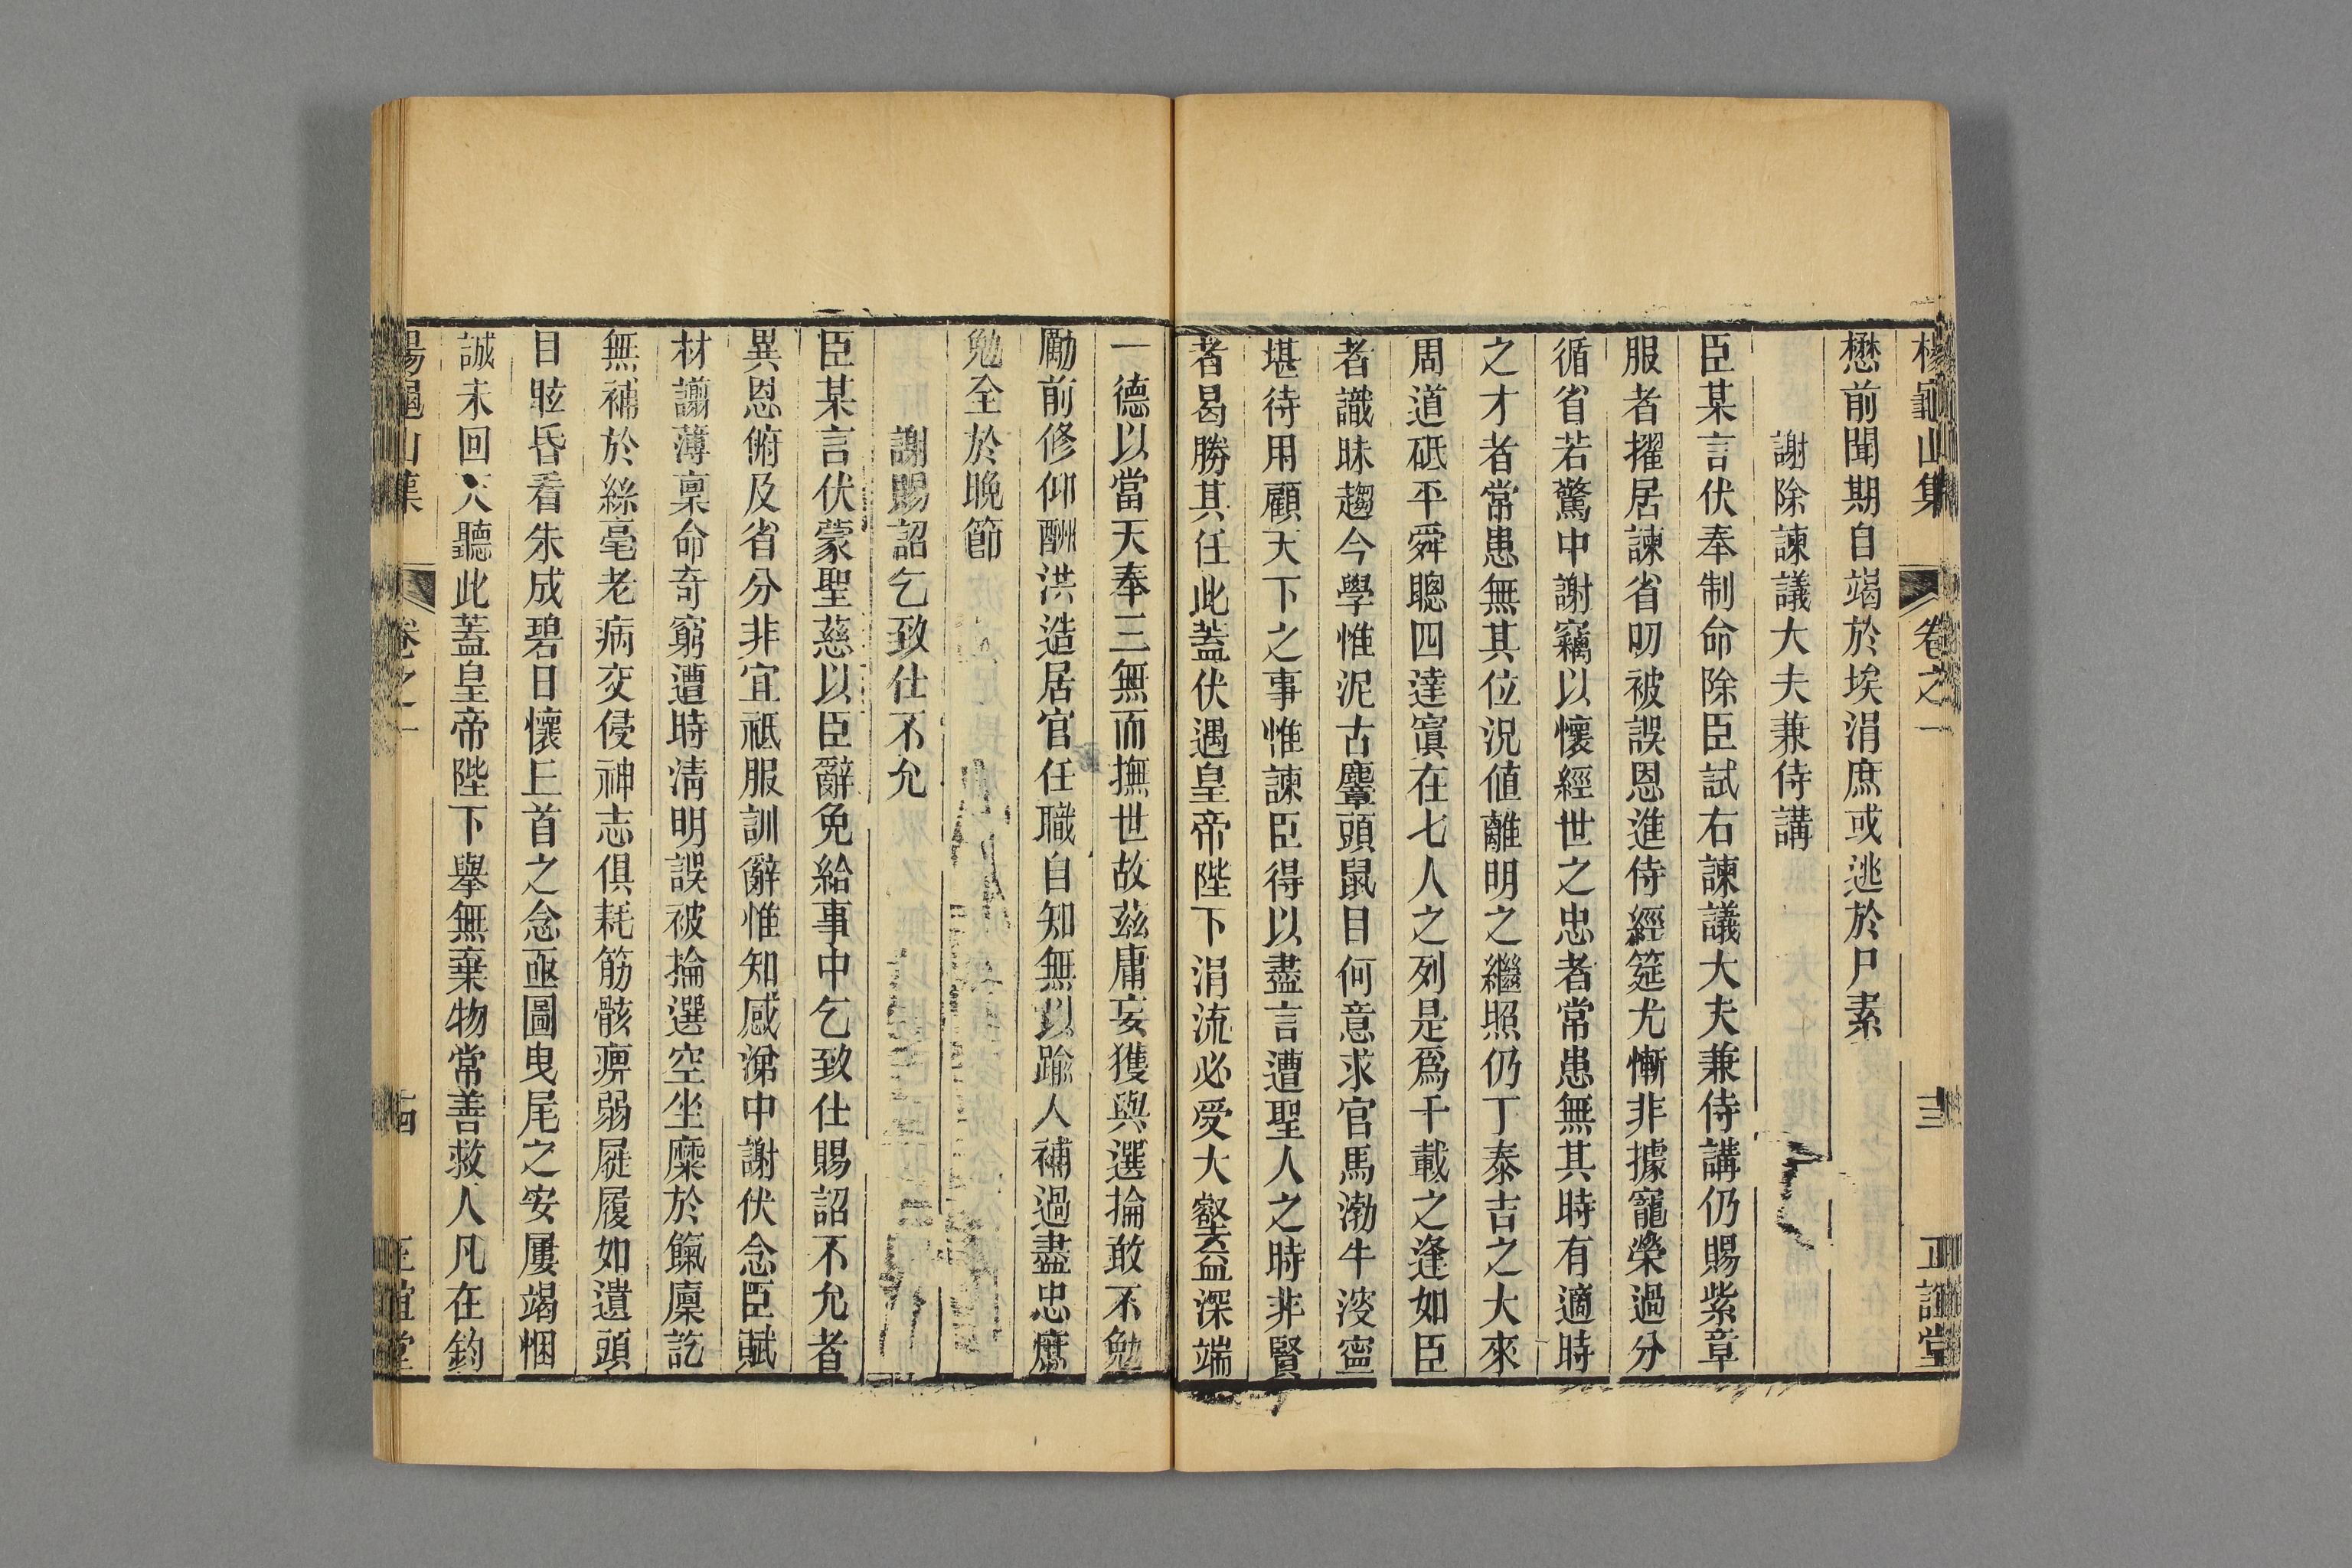 楊龜山集 卷之一 十三 正誼堂
懋前聞期自竭於埃涓庶或逃於尸素
謝除諫議大夫兼侍講
臣某言伏奉制命除臣試右諫議大夫兼侍講仍賜紫章
服者擢居諫省叨被誤恩進侍經筵尤慚非據寵榮過分
循省若驚中謝竊以懷經世之忠者常患無其時有適時
之才者常患無其位況値離明之繼照仍丁泰吉之大來
周道砥平舜聰四達寘在七人之列是爲千載之逢如臣
者識昧趨今學惟泥古麞頭鼠目何意求官馬渤牛溲寍
堪待用顧天下之事惟諫臣得以盡言遭聖人之時非賢
者曷勝其任此蓋伏遇皇帝陛下涓流必受大壑益深端
一德以當天奉三無而撫世故茲庸妄獲與選掄敢不勉
勵前修仰酬洪造居官任職自知無以踰人補過盡忠庶
勉全於晚節
謝賜詔乞致仕不允
臣某言伏蒙聖慈以臣辭免給事中乞致仕賜詔不允者
異恩俯及省分非宜祗服訓辭惟知感涕中謝伏念臣賦
材譾薄稟命奇窮遭時淸明誤被掄選空坐糜於餼廩訖
無補於絲毫老病交侵神志俱耗筋骸痹弱屣履如遺頭
目眩昏看朱成碧日懷丘首之念亟圖曳尾之安屢竭悃
誠未回天聽此蓋皇帝陛下舉無棄物常善救人凡在鈞
楊龜山集 卷之一 十四 正誼堂